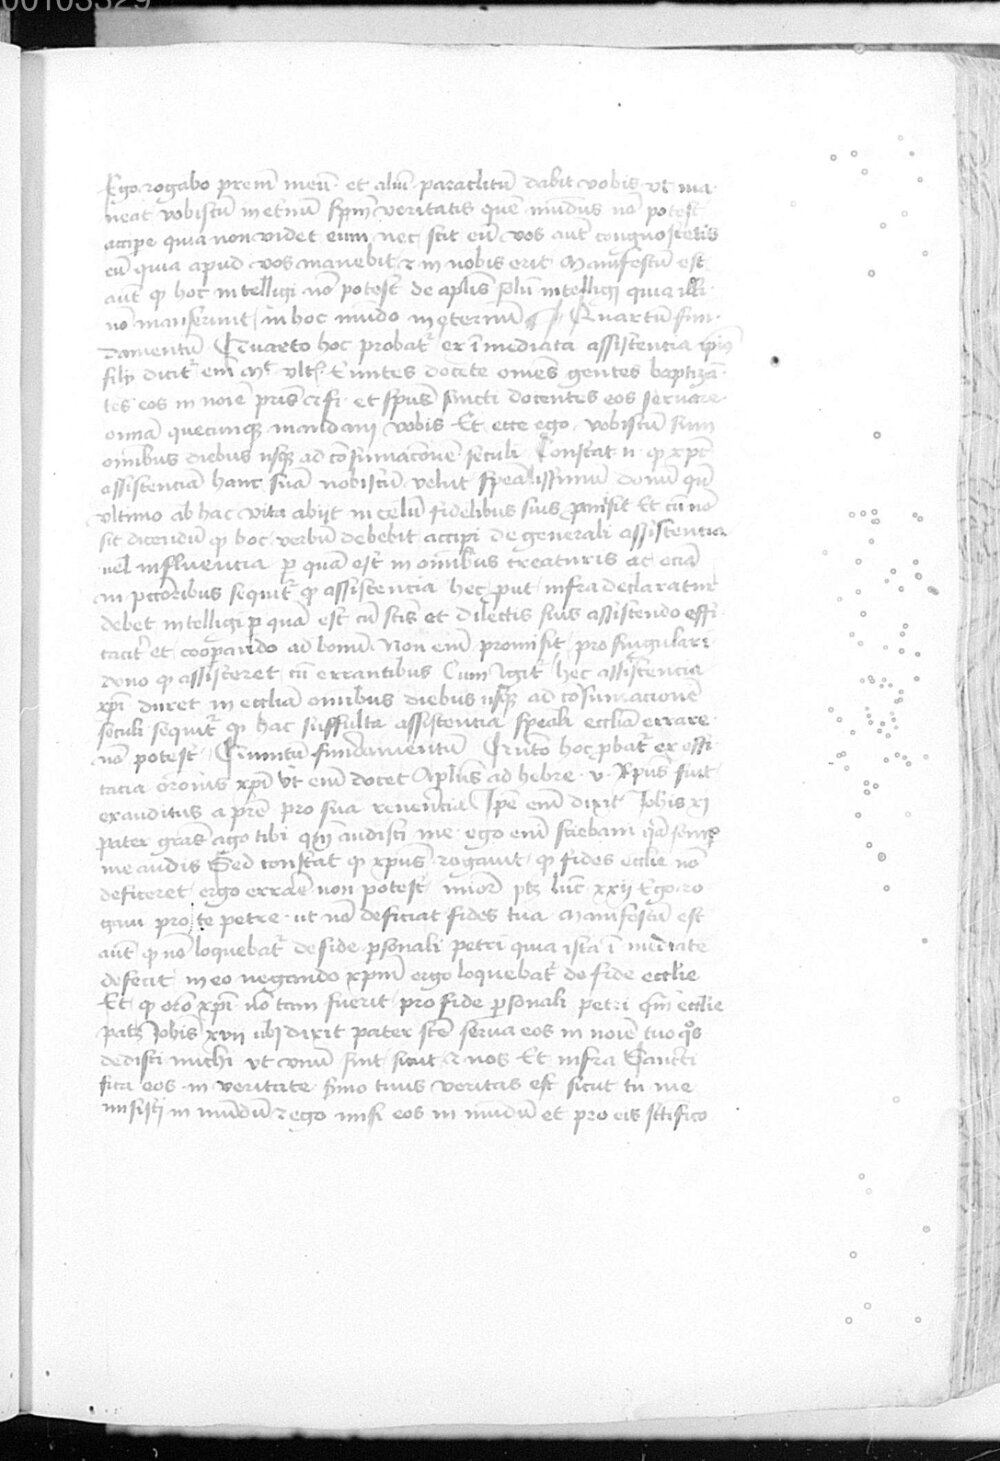 00103329
Ego rogabo prem̄ meū et aliū paraclitū dabit vobis vt ma-
neat vobiscū in et'nū sp̄m veritatis quē mūdus nō potest
accipe quia non videt eum nec scit eū vos aut̄ congnoscetis
eū quia apud vos manebit ⁊ in vobis erit Manifestū est
aut̄ ꝙ hoc intelligi nō potest de apl̄is solū intelligi quia illi
nō manserunt in hoc mūdo in eternū Quartū fun-
damentū Quarto hoc probat̄ ex īmediata assistencia ip̄ius
filij dicit̄ em̄ Mt vlt̄ Euntes docete om̄es gentes baptizā-
tes eos in noīe pr̄is et fi et spūs sancti docentes eos servare
omnia quecunqꝫ mandavi vobis Et ecce ego vobiscū sum
omībus diebus usqꝫ ad cōsumacionē seculi Constat n̄ ꝙ xp̄c
assistenciā hanc suā nobiscū velut sp̄ealissimū donū qn̄
vltimo ab hac vita abijt in celū fidelibus suis ꝓmisit Et cū nō
sit dicendū ꝙ hoc verbū debebit accipi de generali assistencia
vel influencia ꝑ quā est in omībus creaturis ac eciā
in pctōribus sequit̄ ꝙ assistencia hec ꝓut infra declaratur
debet intelligi ꝑ quā est cū sc̄tis et dilectis suis assistendo effi-
caciť et cooꝑando ad bonū Non em̄ promisit pro singulari
dono ꝙ assisteret cū errantibus Cum igit̄ hec assistencia
xp̄i duret in eccl̄iā omībus diebus usqꝫ ad cōsumacionē
seculi sequit̄ ꝙ hac suffulta assistencia sp̄eali eccl̄iā errare
nō potest Quintū fundamentū Quīto hoc ꝓbat̄ ex effi-
cacia orōnis xp̄i Vt em̄ docet Apl̄us ad hebre v Xp̄us fuit
exauditus a pr̄e pro sua reverēcia Ip̄e em̄ dixit Johīs xj
pater grās ago tibi qm̄ audisti me ego em̄ sciebam qā semꝑ
me audis Sed constat ꝙ xp̄us rogavit ꝙ fides eccl̄ie nō
deficeret ergo errare non potest minor ptꝫ luc̄ xxij Ego ro-
gavi pro te petre ut nō deficiat fides tua Manifestū est
aut̄ ꝙ nō loquebat̄ de fide ꝑsonali petri quia ista īmediate
defecit in eo negando xp̄m ergo loquebat̄ de fide eccl̄ie
Et ꝙ orō xp̄i nō tam fuerit pro fide ꝑsonali petri qm̄ eccl̄ie
patꝫ Johīs xvij ubi dixit pater sc̄te serva eos in noīe tuo qͦs
dedisti michi vt vnū sint sicut ⁊ nos Et infra Sancti-
fica eos in veritate s̄mo tuus veritas est sicut tu me
misisti in mūdū ⁊ ego misi eos in mūdū et pro eis sc̄tifico